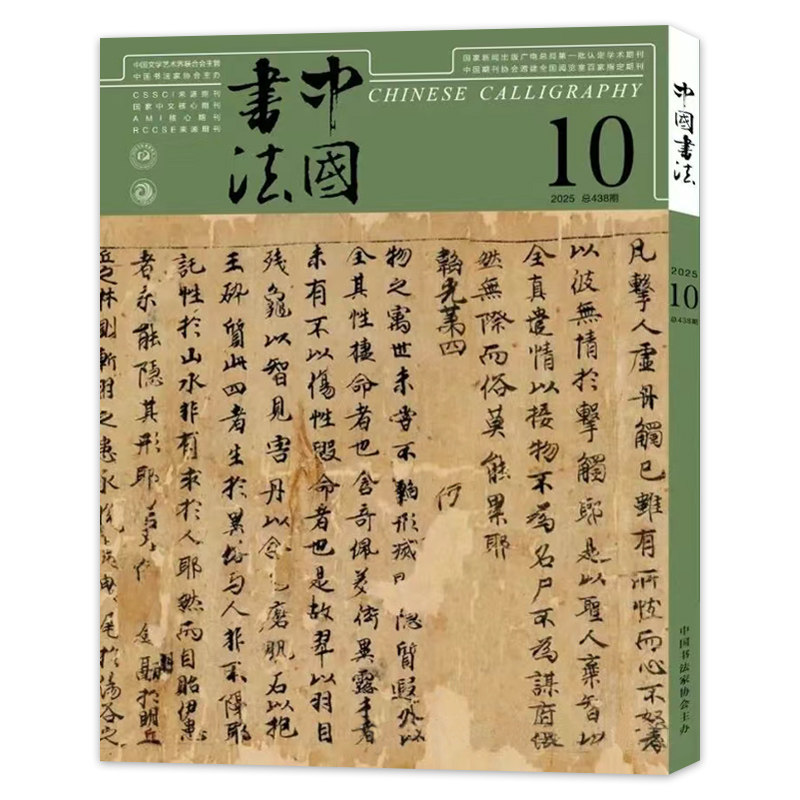 中国文学艺术界联合会主管
中国书法家协会主办
CSSCI来源期刊
国家中文核心期刊
AMI核心期刊
RCCSE来源期刊
中國
書法
国家新闻出版广电总局第一批认定学术期刊
中国期刊协会赠建全国阅览室百家指定期刊
CHINESE CALLIGRAPHY
10
2025 总438期
凡擊人虛舟觸己雖有所忮而心不怒者
以彼無情於擊觸耶是以聖人棄智以
全真遣情以接物不為名尸不為謀府混
然無際而俗莫能累耶
韜光第四 何
物之寓世未嘗不韜形滅 隱質遐外以
全其性棲命者也含奇佩美衒異露才者
未有不以傷性毀命者也是故翠以羽自
殘龜以智見害丹以含 磨肌石以抱
玉碎質此四者生於異俗与人非不隔耶
託性於山水非有求於人耶然而自貽伊患
者未能隱其形耶 於明丘
丘之林則 斬羽之患永 尾於湯谷之
中國書法
2025
10
总438期
中国书法家协会主办